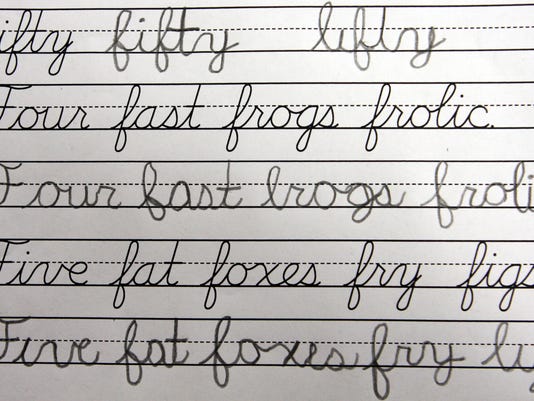 ifty fifty lifty
Four fast frogs frolic.
Four fast lrogs froli
Five fat foxes fry figs
Five fat foxes fry